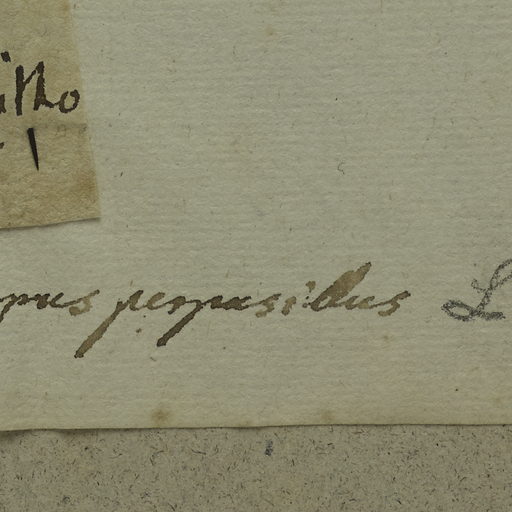 itho
pus perpusilus L